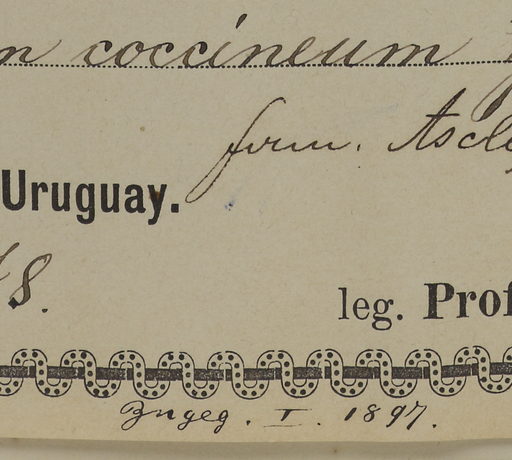 coccineum
fam. Ascle
Uruguay.
8.
leg. Prof
Zngeg. I. 1897.